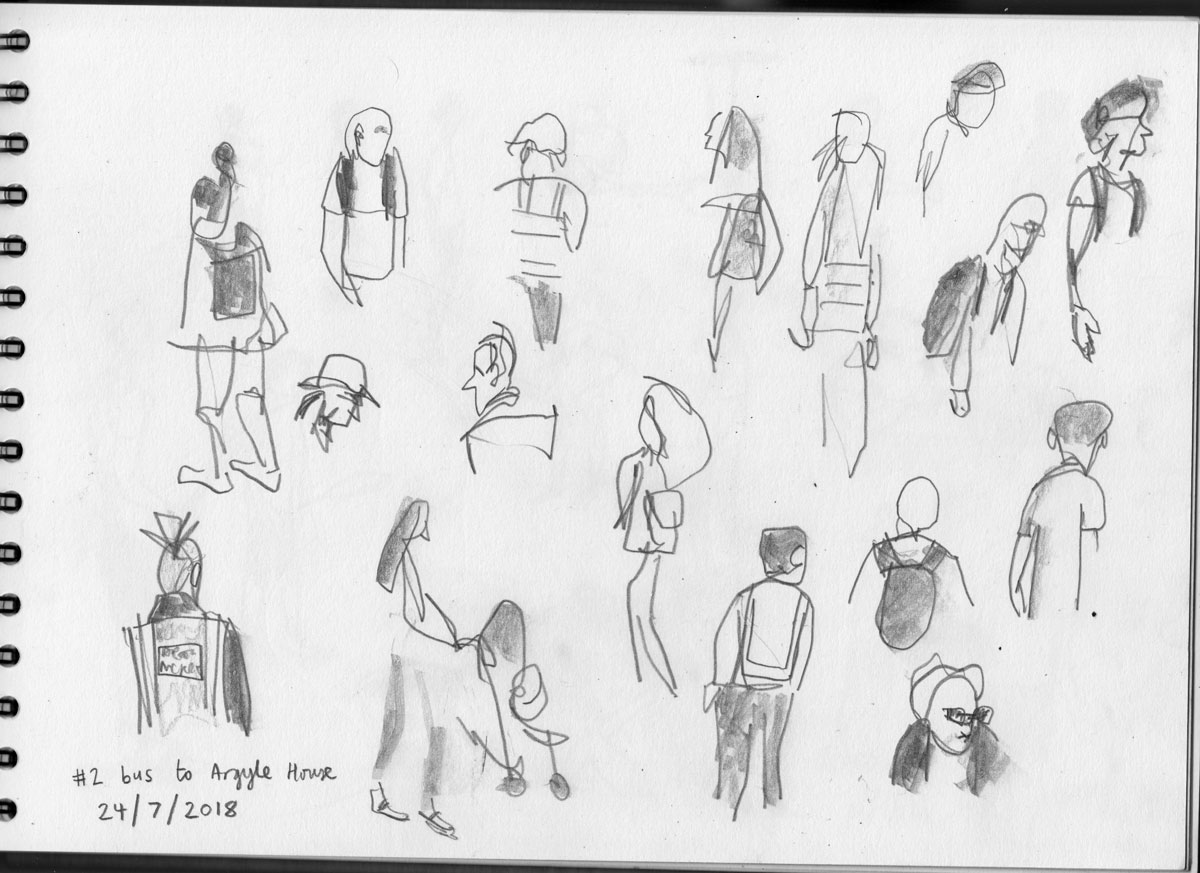 #2 bus to Argyle House
24/7/2018